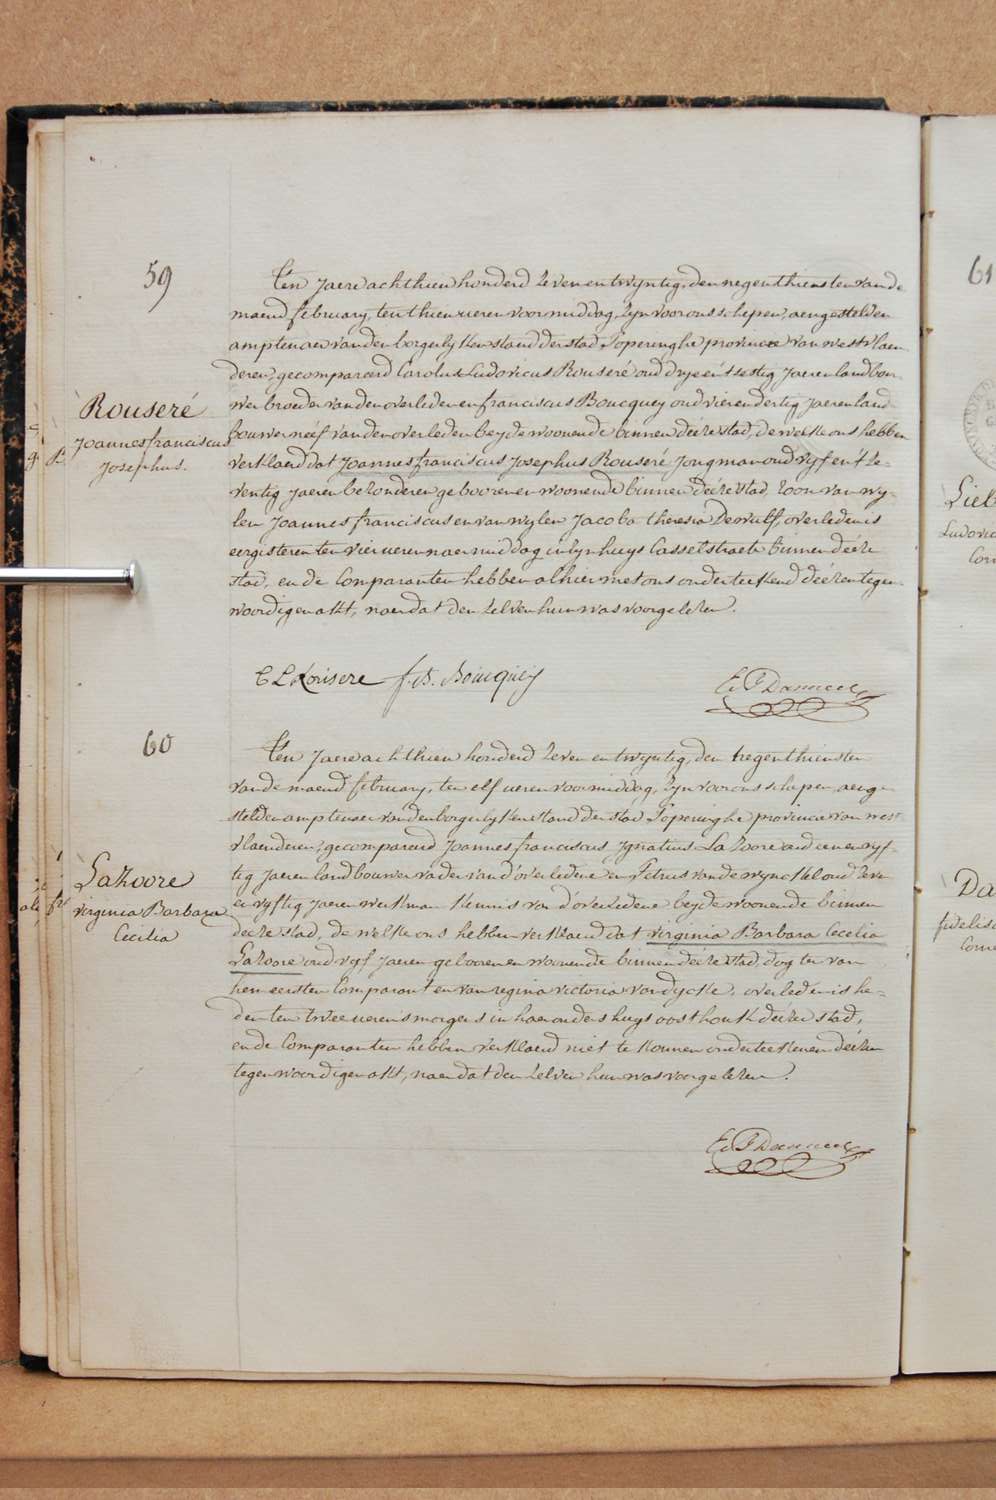 59
Ten jaere achthien honderd zeven en twyntig, den negenthiensten van de
maend february, ten thien ueren voormiddag, zyn voor ons schepen, aengestelden
amptenaer van den borgerlyken stand der stad Poperinghe provincie van westvlaen-
deren, gecompareerd Carolus Ludovicus Rouseré oud dryeentsestig jaeren landbou-
wer broeder van den overledenen franciscus Boucquey oud vierendertig jaeren land
bouwer neef van den overleden beyde woonende binnen deéze stad, de welke ons hebben
verklaerd dat Joannes franciscus Josephus Rouseré Jongman oud vyf en 't ze-
ventig jaeren bezonderen gebooren en woonende binnen deéze stad, zoon van wy-
len Joannes franciscus en van wylen Jacoba theresia Dewulf, overleden is
eergisteren ten vier ueren naermiddag in zyn huys Casselstraete binnen deéze
stad, en de Comparanten hebben alhier met ons onderteekend deézen tegen-
woordigen akt, naer dat den zelven hun was voorgelezen.
Rouseré
Joannes franciscus
Josephus.
C L Rousere f. B. Boucquey
60
Ten jaere achthien honderd zeven en twyntig, den negenthiensten
van de maend february, ten elf ueren voormiddag, zyn voor ons schepen, aenge-
stelden amptenaer van den borgerlyken stand der stad Poperinghe provincie van west
vlaenderen, gecompareerd Joannes franciscus Ignatius LaZoore oud een en vyf-
tig jaeren landbouwer vader van d'overledene en Petrus vande wynckel oud zeven
en vyftig jaeren werkman kennis van d'overledene beyde woonende binnen
deéze stad, de welke ons hebben verklaerd dat virginia Barbara Cecelia
LaZoore oud vyf jaeren gebooren en woonende binnen deéze stad, dogter van
hem eersten Comparant en van regina victoria vandycke, overleden is he-
den ten twee ueren smorgens in haer ouders huys oosthouk deéze stad,
en de Comparanten hebben verklaerd niet te konnen onderteekenen deézen
tegenwoordigen akt, naer dat den zelven hun was voorgelezen.
LaZoore
virginia Barbara
Cecilia
61